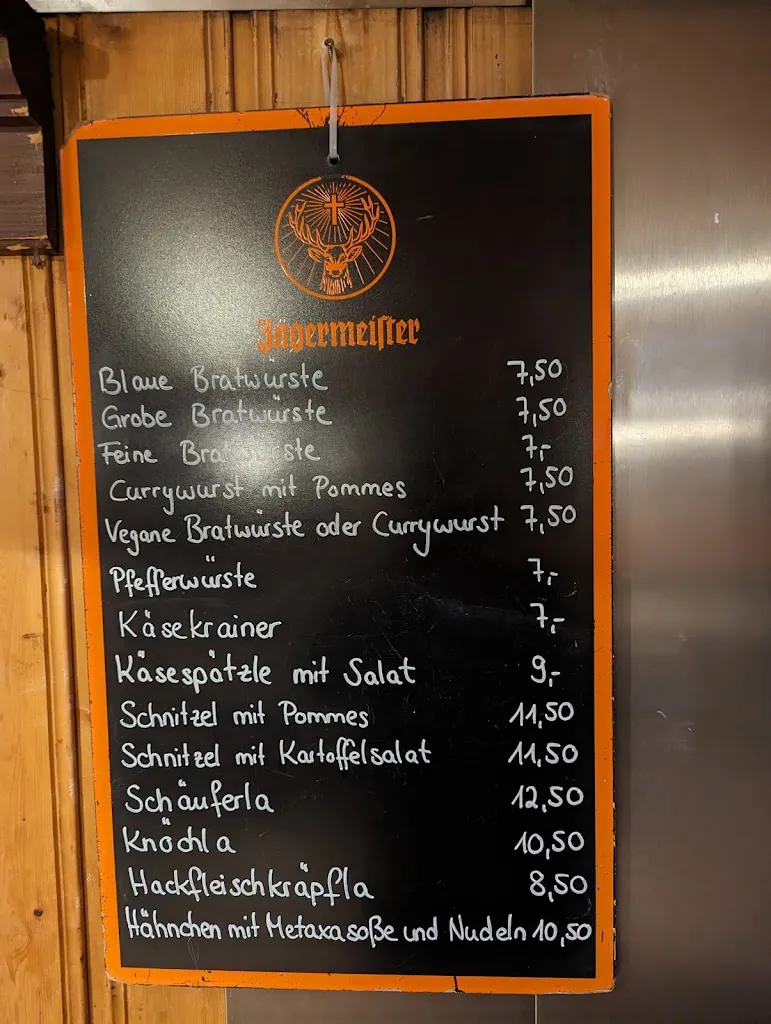 Jägermeister
Blaue Bratwürste 7,50
Grobe Bratwürste 7,50
Feine Bratwürste 7,-
Currywurst mit Pommes 7,50
Vegane Bratwürste oder Currywurst 7,50
Pfefferwürste 7,-
Käsekrainer 7,-
Käsespätzle mit Salat 9,-
Schnitzel mit Pommes 11,50
Schnitzel mit Kartoffelsalat 11,50
Schäuferla 12,50
Knöchla 10,50
Hackfleischkräpfla 8,50
Hähnchen mit Metaxasoße und Nudeln 10,50